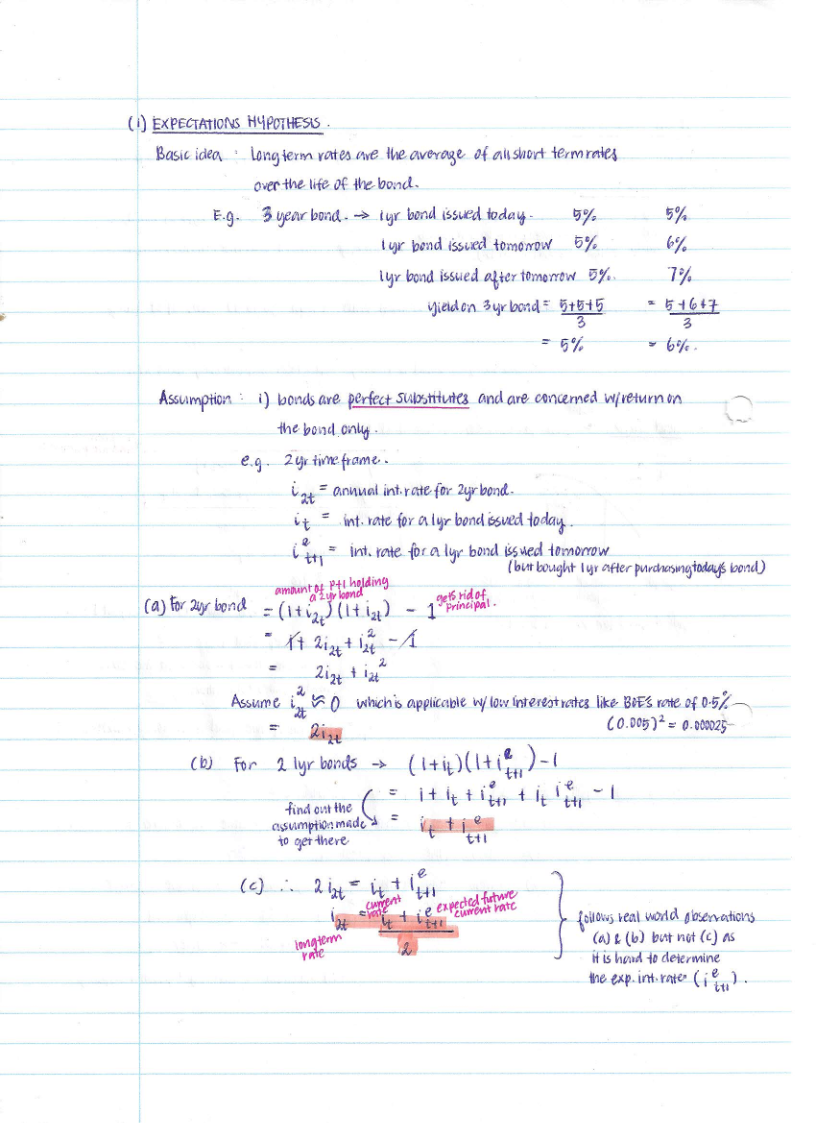 (i) EXPECTATIONS HYPOTHESIS.
Basic idea : Long term rates are the average of all short term rates
over the life of the bond.
E.g. 3 year bond. → 1yr bond issued today. 5% 5%
1yr bond issued tomorrow 5% 6%
1yr bond issued after tomorrow 5%. 7%
Yield on 3yr bond = 5+5+5/3 = 5+6+7/3
= 5% = 6%.
Assumption : i) bonds are perfect substitutes and are concerned w/return on
the bond only.
e.g. 2yr time frame.
i₂ₜ = annual int. rate for 2yr bond.
iₜ = int. rate for a 1yr bond issued today.
iᵉₜ₊₁ = int. rate for a 1yr bond issued tomorrow
(but bought 1yr after purchasing today's bond)
amount of P+I holding
a 2yr bond
gets rid of
principal.
(a) For 2yr bond = (1+i₂ₜ)(1+i₂ₜ) - 1
= 1 + 2i₂ₜ + i₂ₜ² - 1
= 2i₂ₜ + i₂ₜ²
Assume i₂ₜ² ≈ 0 which is applicable w/ low interest rates like BOE's rate of 0.5%
= 2i₂ₜ (0.005)² = 0.000025
(b) For 2 1yr bonds → (1+iₜ)(1+iᵉₜ₊₁) - 1
= 1 + iₜ + iᵉₜ₊₁ + iₜ iᵉₜ₊₁ - 1
find out the
assumption made
to get there
= iₜ + iᵉₜ₊₁
(c) ∴ 2i₂ₜ = iₜ + iᵉₜ₊₁
i₂ₜ = iₜ + iᵉₜ₊₁ / 2
current
rate
expected future
current rate
long term
rate
follows real world observations
(a) & (b) but not (c) as
it is hard to determine
the exp. int. rates (iᵉₜ₊₁).